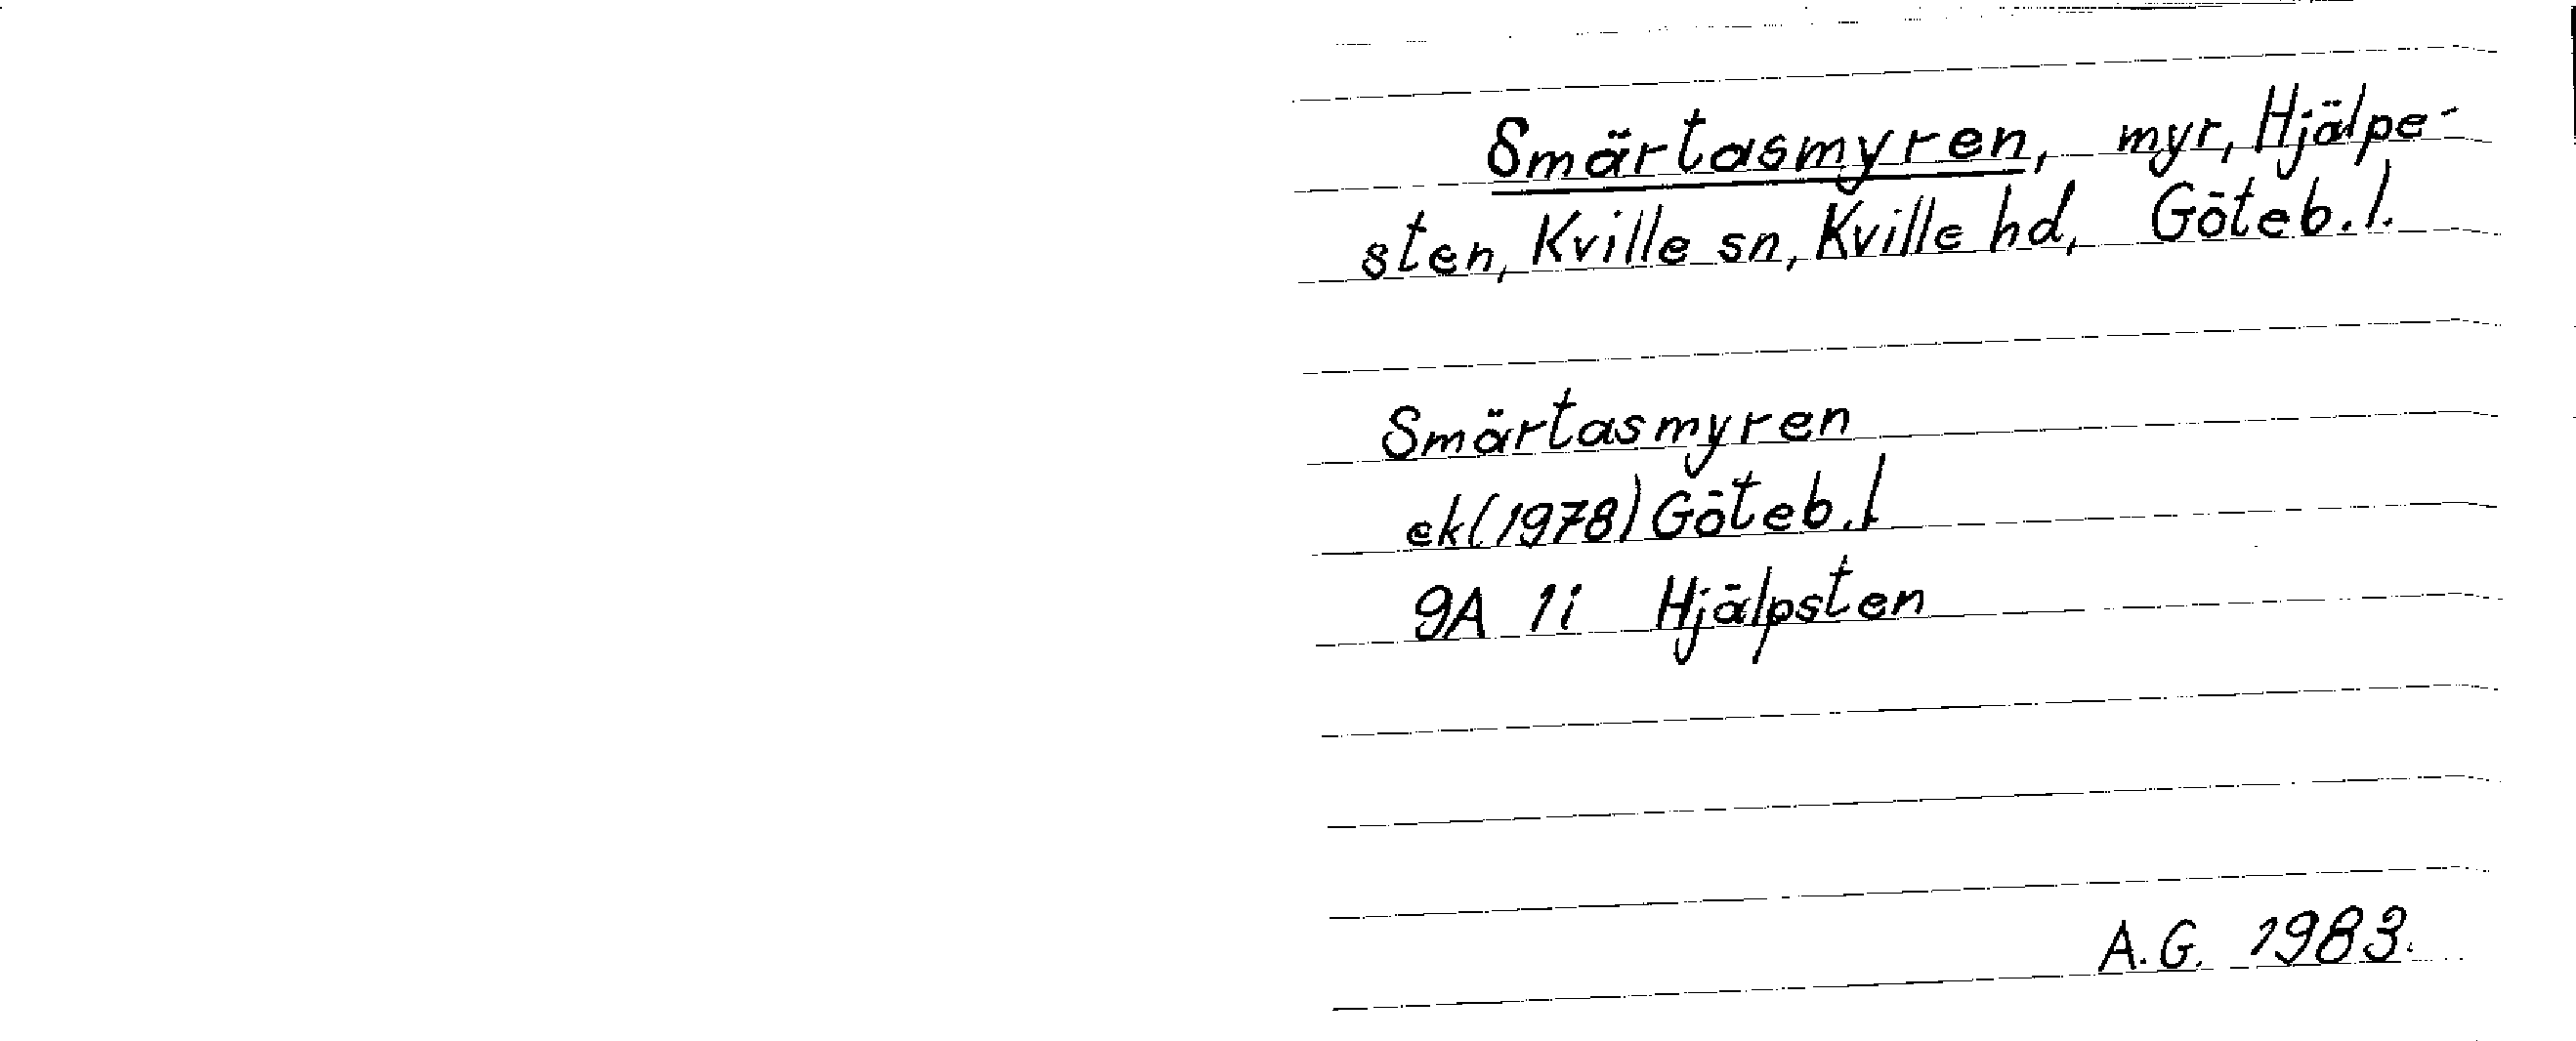 Smärtasmyren, myr, Hjälpe-
sten, Kville sn, Kville hd, Göteb. l.
Smärtasmyren
ek (1978) Göteb. l
9A 1i Hjälpsten
A.G. 1983.